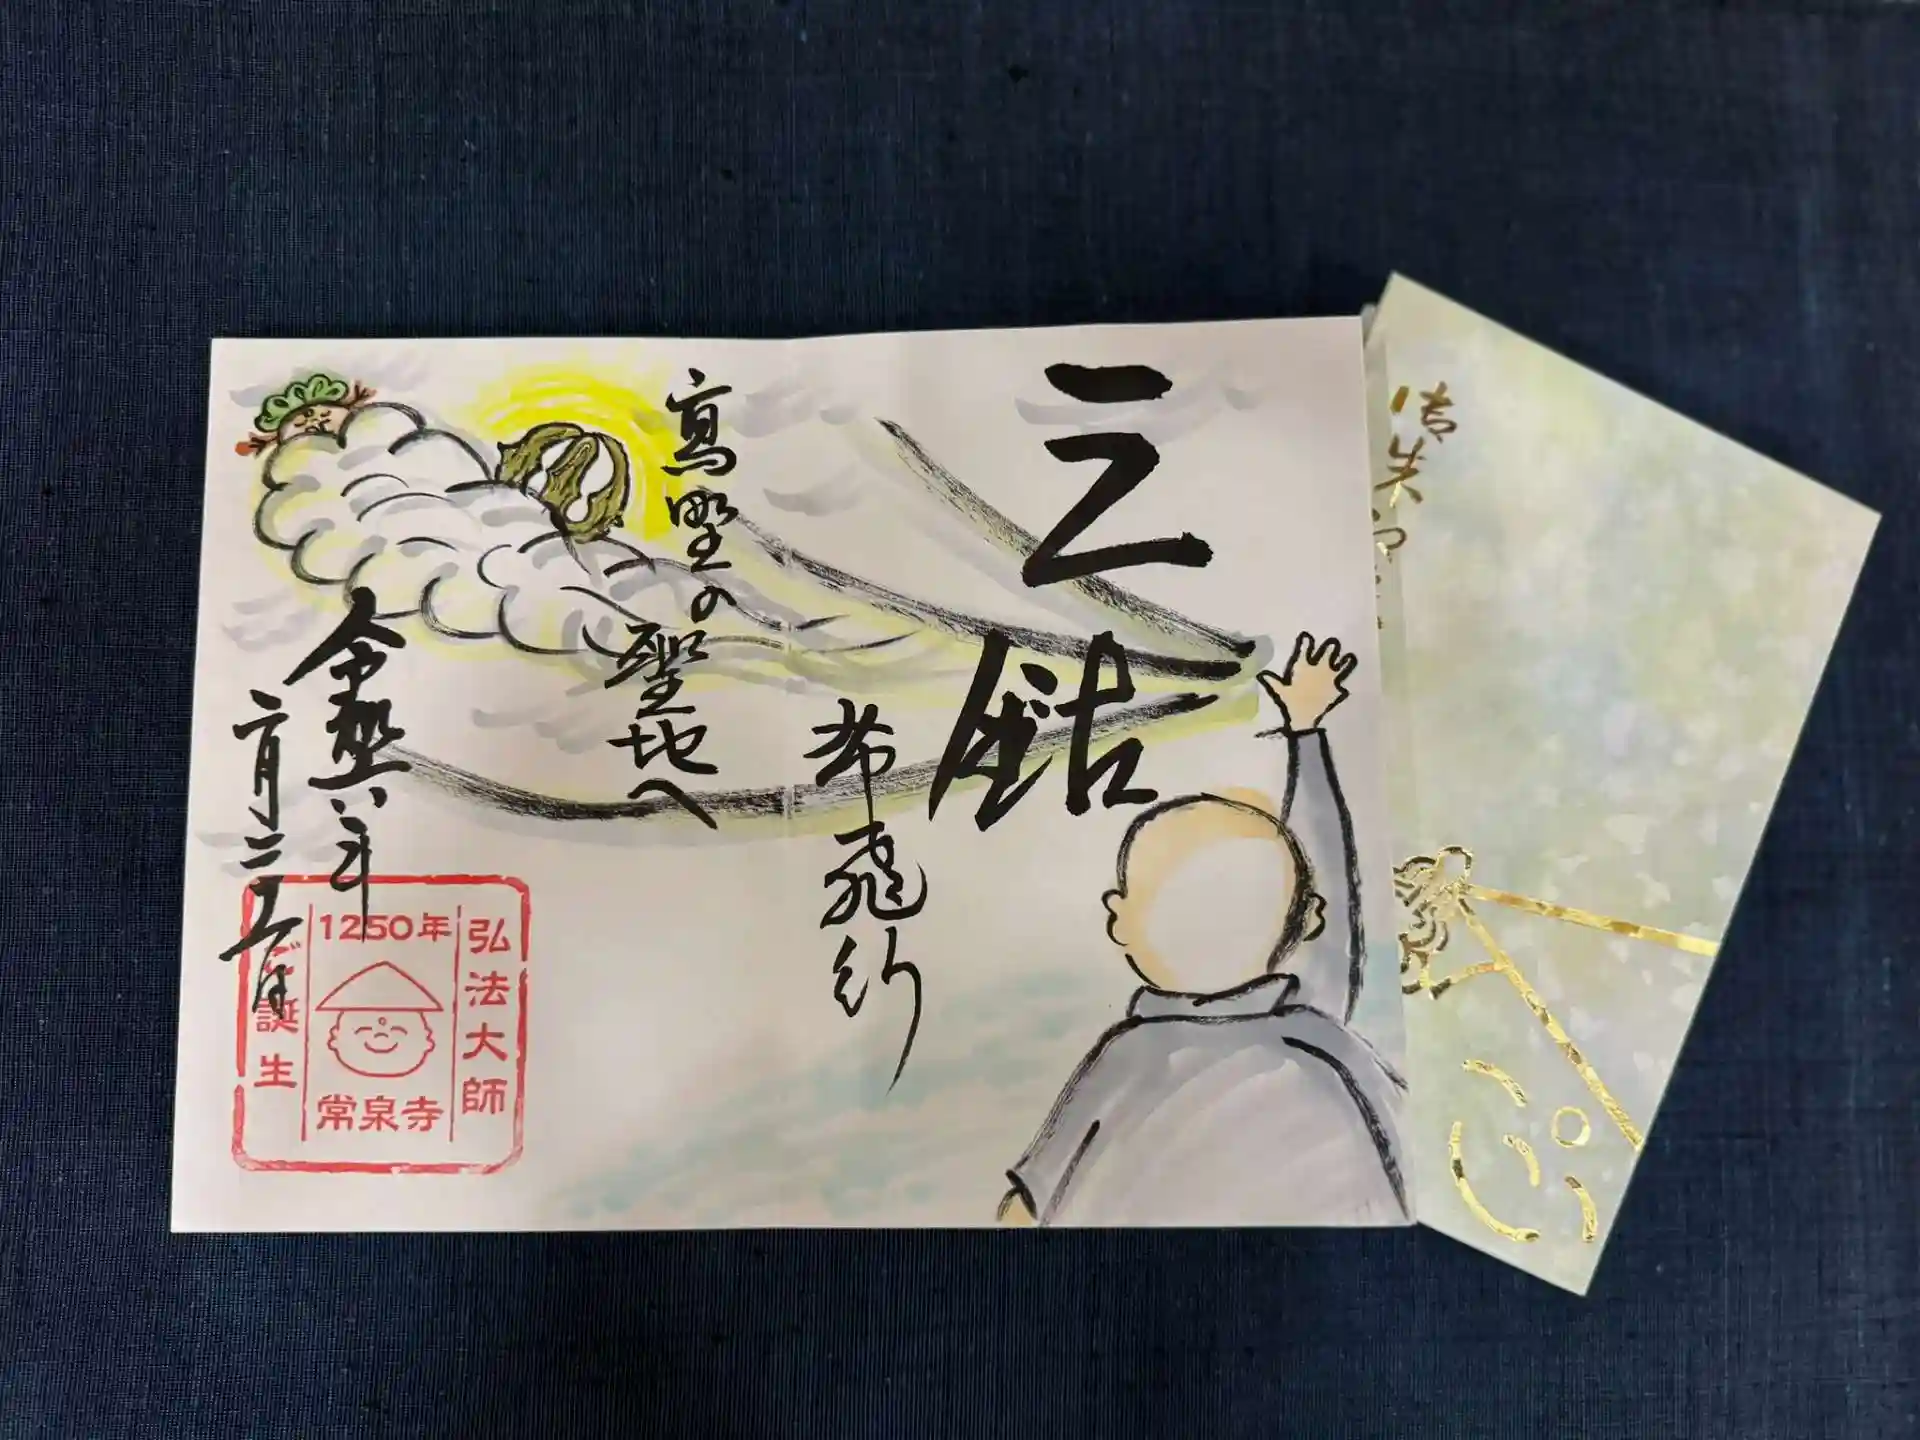 三鈷
杵飛行
高野の聖地へ
令和六年
二月二十五日
弘法大師
1250年
ご誕生
常泉寺
御朱印